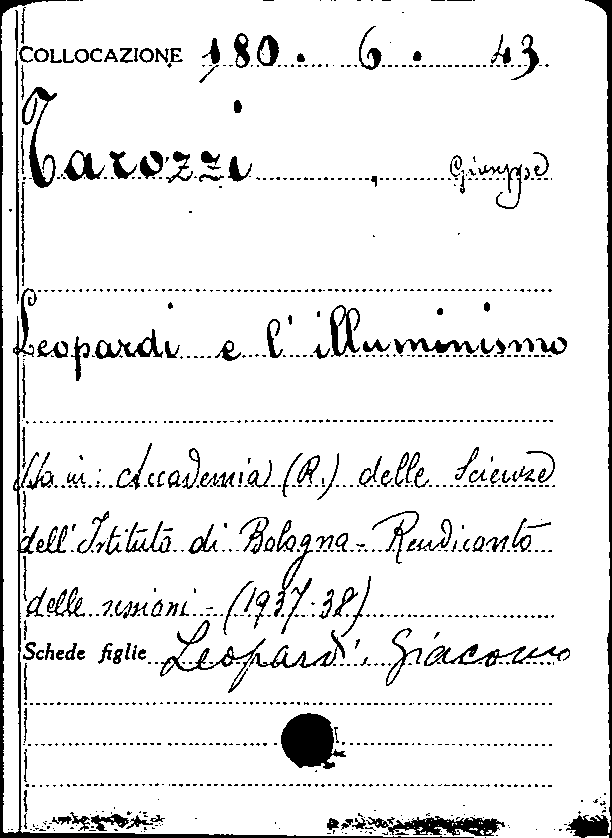 COLLOCAZIONE 180. 6. 43
Tarozzi, Giuseppe
Leopardi e l'illuminismo
Sta in: Accademia (R.) delle Scienze
dell'Istituto di Bologna - Rendiconto
delle sessioni - (1937-38)
Schede figlie Leopardi, Giacomo